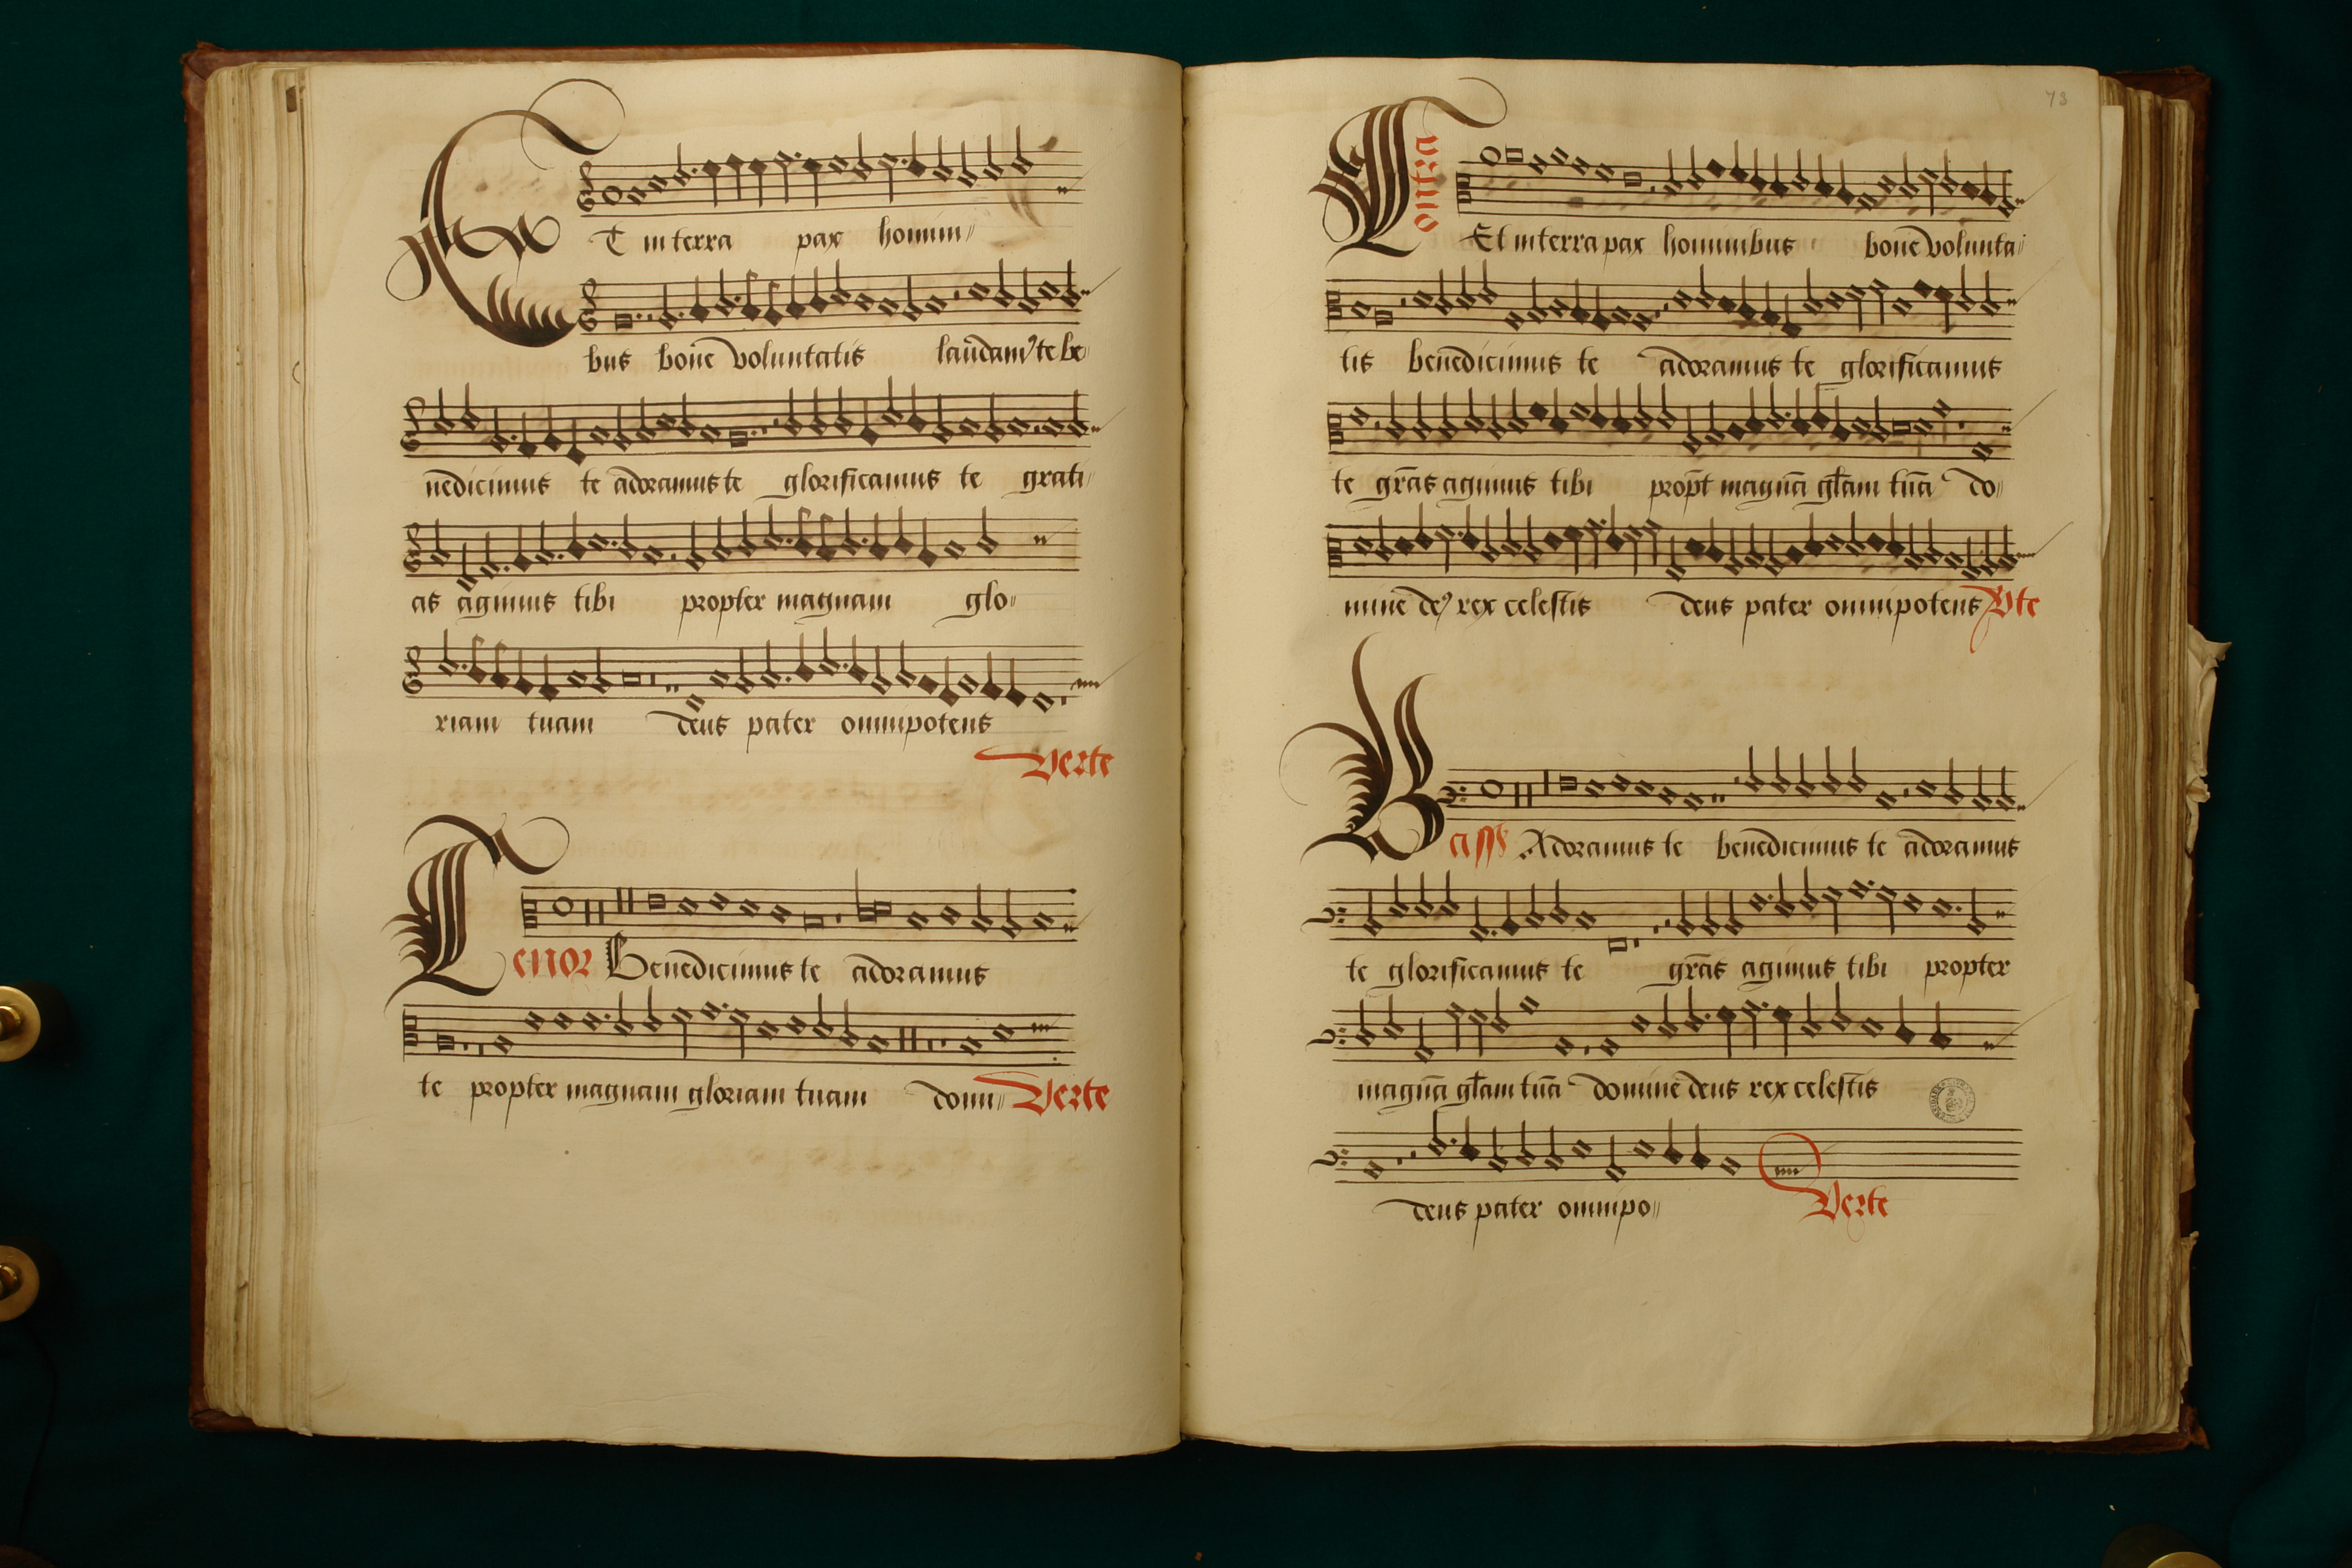 ET in terra pax homin〃
bus bone voluntatis laudam9 te be〃
nedicimus te adoramus te glorificamus te grati〃
as agimus tibi propter magnam glo〃
riam tuam deus pater omnipotens
Verte
Tenor Benedicimus te adoramus
te propter magnam gloriam tuam domi〃 Verte
73
Contra Et in terra pax hominibus bone volunta〃
tis benedicimus te adoramus te glorificamus
te gr̃as agimus tibi propt̃ magnã gl̃am tuã do〃
mine de9 rex celestis deus pater omnipotens Vte
Bass9 Adoramus te benedicimus te adoramus
te glorificamus te gr̃as agimus tibi propter
magnã gl̃am tuã domine deus rex celestis
deus pater omnipo〃 Verte